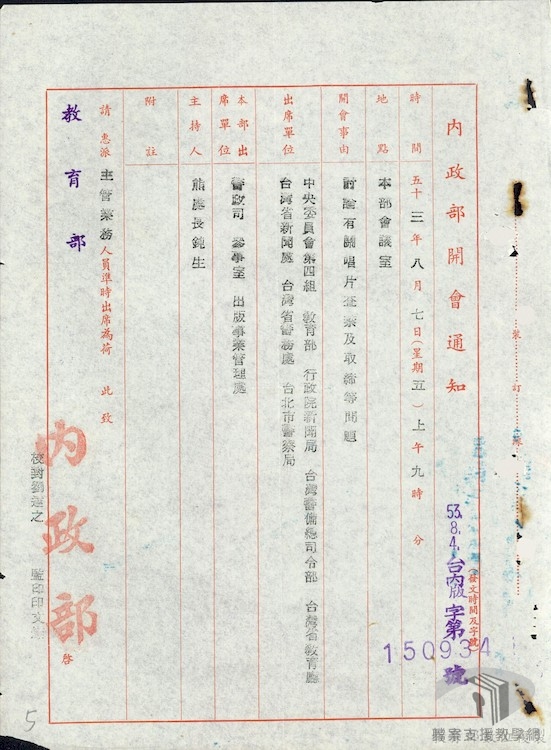 內政部開會通知
53.8.4.台內版字第150934號
(發文時間及字號)
時間 五十三年八月七日(星期五)上午九時 分
地點 本部會議室
開會事由 討論有關唱片查禁及取締等問題
出席單位 中央委員會第四組 教育部 行政院新聞局 台灣警備總司令部 台灣省教育廳
台灣省新聞處 台灣省警務處 台北市警察局
本部出席單位 警政司 參事室 出版事業管理處
主持人 熊處長鈍生
附註
請惠派主管業務人員準時出席為荷 此致
教育部
內政部啓
監印
裝
訂
5
檔案支援教學網